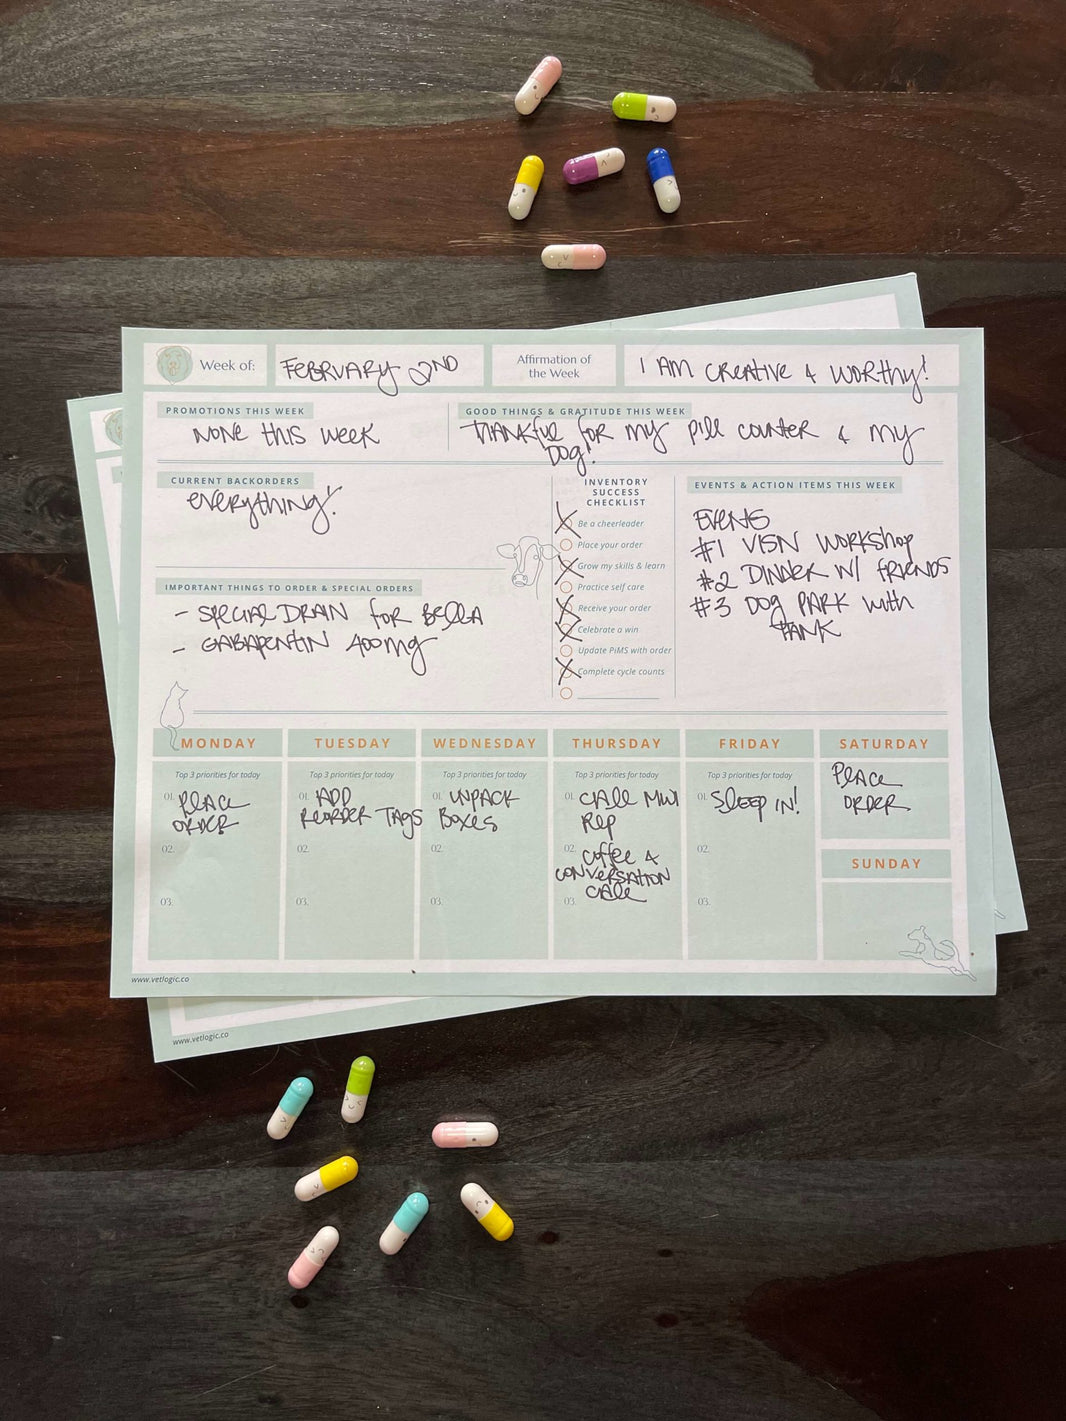 Week of:
FEBRUARY 2ND
Affirmation of
the Week
I AM CREATIVE & WORTHY!
PROMOTIONS THIS WEEK
NONE THIS WEEK
GOOD THINGS & GRATITUDE THIS WEEK
THANKFUL for MY PILL COUNTER & MY
DOG!
CURRENT BACKORDERS
EVERYTHING!
IMPORTANT THINGS TO ORDER & SPECIAL ORDERS
- SPECIAL DRAIN for BELLA
- GABAPENTIN 400mg
INVENTORY
SUCCESS
CHECKLIST
Be a cheerleader
Place your order
Grow my skills & learn
Practice self care
Receive your order
Celebrate a win
Update PiMS with order
Complete cycle counts
EVENTS & ACTION ITEMS THIS WEEK
EVENTS
#1 VISN WORKSHOP
#2 DINNER W/ FRIENDS
#3 DOG PARK WITH
HANK
MONDAY
Top 3 priorities for today
01. PLACE
ORDER
02.
03.
TUESDAY
Top 3 priorities for today
01. ADD
REORDER TAGS
02.
03.
WEDNESDAY
Top 3 priorities for today
01. UNPACK
BOXES
02.
03.
THURSDAY
Top 3 priorities for today
01. CALL MWI
REP
02. COFFEE &
CONVERSATION
03. CALL
FRIDAY
Top 3 priorities for today
01. SLEEP IN!
02.
03.
SATURDAY
PLACE
ORDER
SUNDAY
www.vetlogic.co
www.vetlogic.co